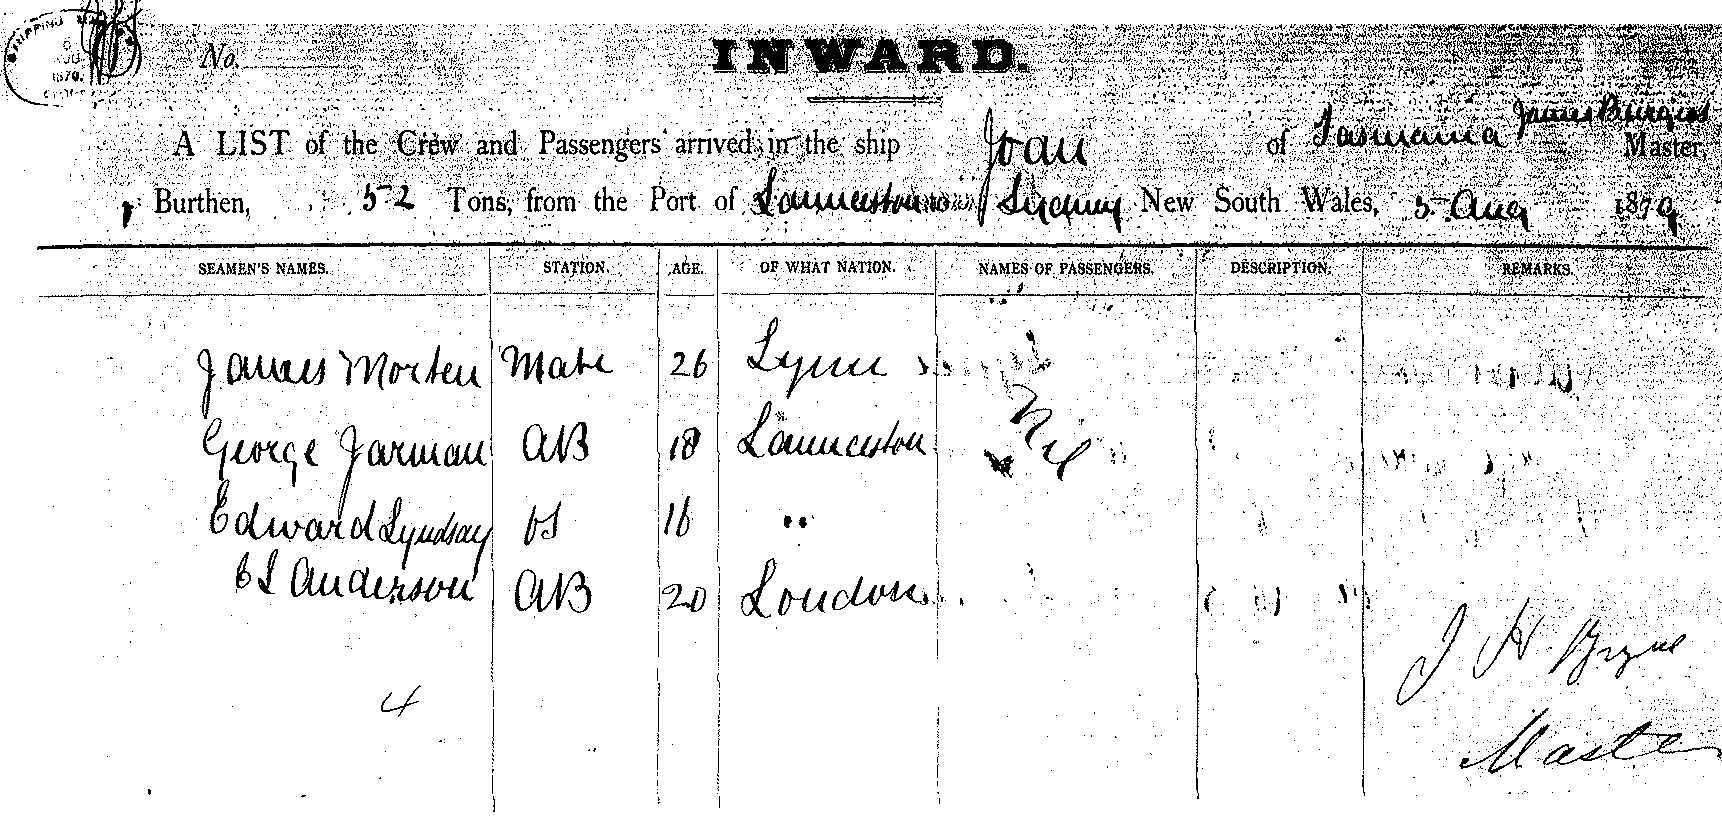 SHIPPING
1879.
No.
INWARD.
A LIST of the Crew and Passengers arrived in the ship Joan of Tasmania James Burgess Master,
Burthen, 52 Tons, from the Port of Launceston to Sydney New South Wales, 5 Aug 1879
SEAMEN'S NAMES. STATION. AGE. OF WHAT NATION. NAMES OF PASSENGERS. DESCRIPTION. REMARKS.
James Morten Mate 26 Lynn
George Jarman AB 18 Launceston Nil
Edward Lyndsay OS 16 "
Anderson AB 20 London
J H Byrne
4
Master